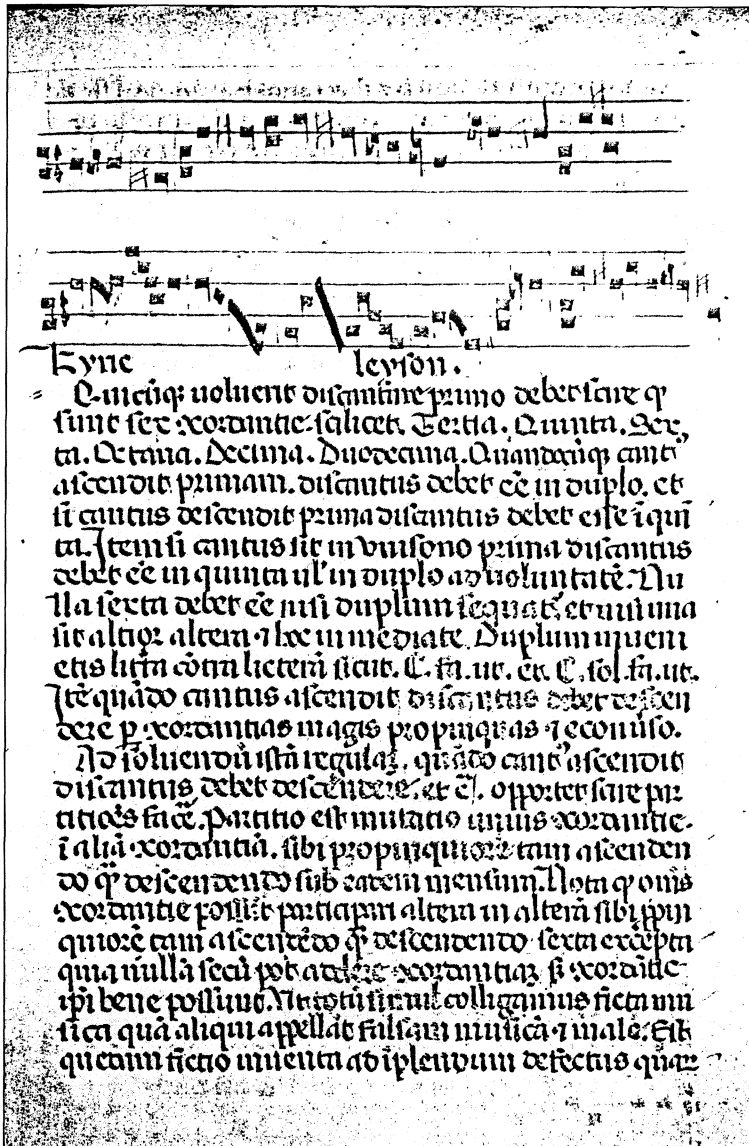 Kyrie leyson.
Quicūqꝫ uoluerit discantare primo debet scire qꝫ
sunt sex ↄcordantie. scilicet. Tertia. Quinta. Sex
ta. Octaua. Decima. Duodecima. Quandocūqꝫ cantꝰ
ascendit primam. discantus debet eē in duplo. et
si cantus descendit prima discantus debet esse ī quī
ta. Item si cantus sit in vnisono prima discantus
debet eē in quinta ul' in duplo ad uoluntatē. Nu
lla sexta debet eē nisi duplum sequat᷑. et nisi una
sit altior altera ⁊ hoc inmediate. Duplum inueni
etis litt̄a cōtra litterā sicut. C. fa. ut. et. C. sol. fa. ut.
Itē quādo cantus ascendit discantus debet descen
dere ꝑ ↄcordantias magis propinquas ⁊ econuerso.
Ad soluendū istā regulaꝫ. quādo cantꝰ ascendit
discantus debet descendere. et c̄. opportet scire par
titiones facē. Partitio est mutatio unius ↄcordantie.
ī aliā ↄcordantiā. sibi propinquiorē tam ascenden
do qꝫ descendendo sub eadem mensura. Nota qꝫ om̄s
ↄcordantie possūt participari altera in alterā sibi ꝓpin
quiorē tam ascendēdo qꝫ descendendo sexta excepta
quia nulla secū pōt addere ↄcordantiaꝫ. ꝫ ↄcordātie
ip̄i bene possunt. colligamus ficta mu
sica quā aliqui appellāt falsam musicā ⁊ male. Est
quedam fictio inuenta ad īplendum defectus quar